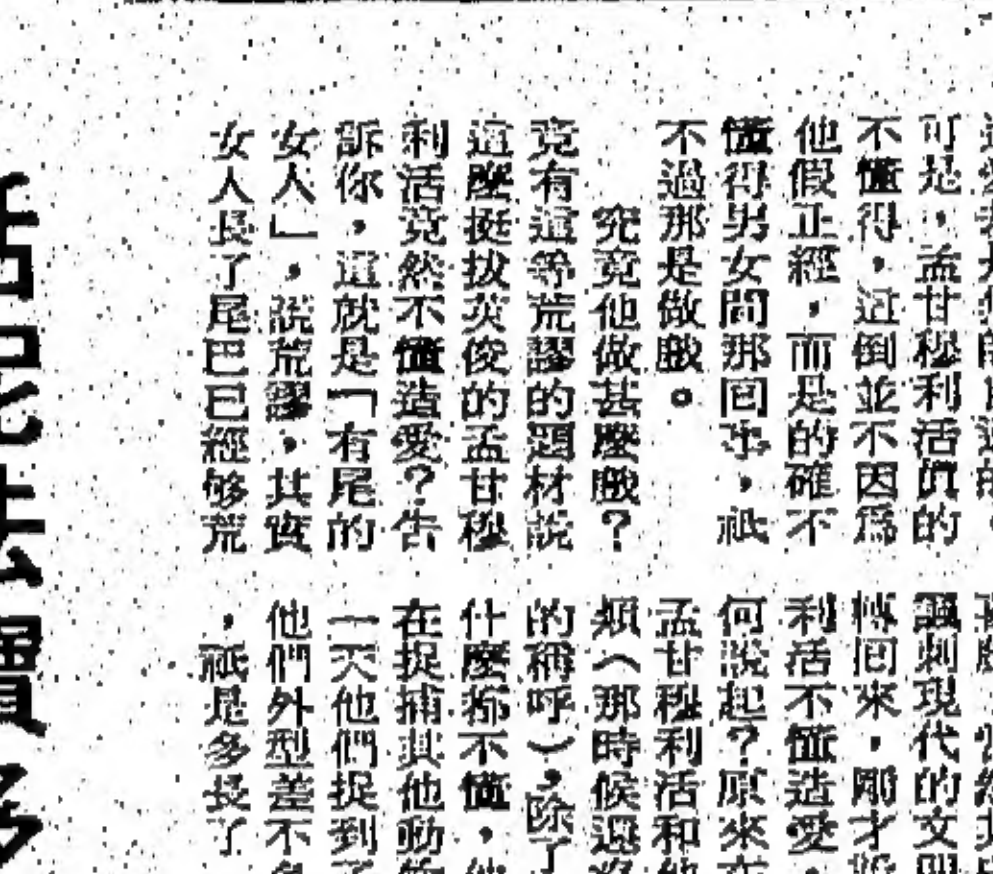 可是，孟甘穆利活眞的
不懂得，這倒並不因爲
他假正經，而是的確不
懂得男女間那回事，祇
不過那是做戲。
究竟他做甚麼戲？
竟有這等荒謬的題材說
這麼挺拔英俊的孟甘穆
利活竟然不懂造愛？告
訴你，這就是「有尾的
女人」，說荒謬，其實
女人長了尾巴已經够荒
諷刺現代的文明
轉回來，剛才說
利活不懂造愛，
何說起？原來在
孟甘穆利活和他
類（那時候還沒
的稱呼），除了
什麼都不懂，他
在捉捕其他動物
一天他們捉到了
他們外型差不多
，祇是多長了
活尼法寶多